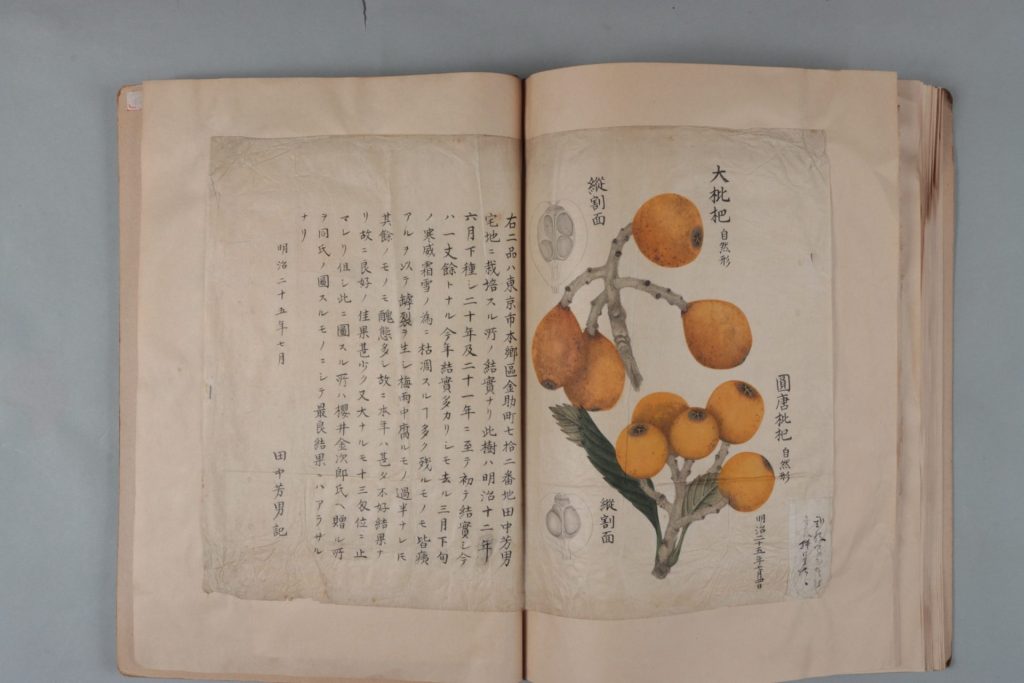 大枇杷 自然形
縱割面
圓唐枇杷 自然形
縱割面
明治二十五年七月四日
右二品ハ東京市本鄕區金助町七拾二番地田中芳男
宅地ニ栽培スル所ノ結實ナリ此樹ハ明治十二年
六月下種シ二十年及二十一年ニ至テ初テ結實シ今
ハ一丈餘トナル今年結實多カリシモ去ル三月下旬
ノ寒威霜雪ノ為ニ枯凋スルヿ多ク残ルモノモ皆痍
アルヲ以テ罅裂ヲ生シ梅雨中腐ルモノ過半ナレㇳモ
其餘ノモノモ醜態多シ故ニ本年ハ甚タ不好結果ナ
リ故ニ良好ノ佳果甚少ク又大ナルモ十三匁位ニ止
マレリ但シ此ニ圖スル所ハ櫻井金次郎氏ヘ贈ル所
ヲ同氏ノ圖スルモノニシテ最良結果ニハアラサル
ナリ
明治二十五年七月
田中芳男記